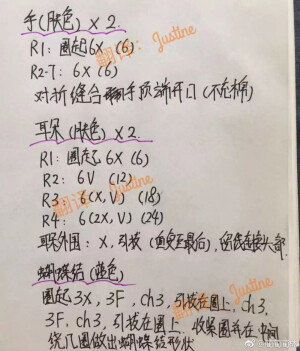 手(肤色) x 2.
R1: 圈起6X (6)
R2-7: 6X (6)
对折缝合手顶端开口 (不在棉)
耳朵(肤色) x 2.
R1: 圈起6X (6)
R2: 6V (12)
R3: 6(X,V) (18)
R4: 6(2X,V) (24)
耳朵外围: X, 引拔 (直至最后), 留线连接头部.
蝴蝶结(蓝色)
圈起3X, 3F, ch3, 引拔在圈上, ch3,
3F, ch3, 引拔在圈上. 收紧圈并在中间
绕几圈做出蝴蝶结形状
翻译: Justine
翻译: Justine
翻译: Justine